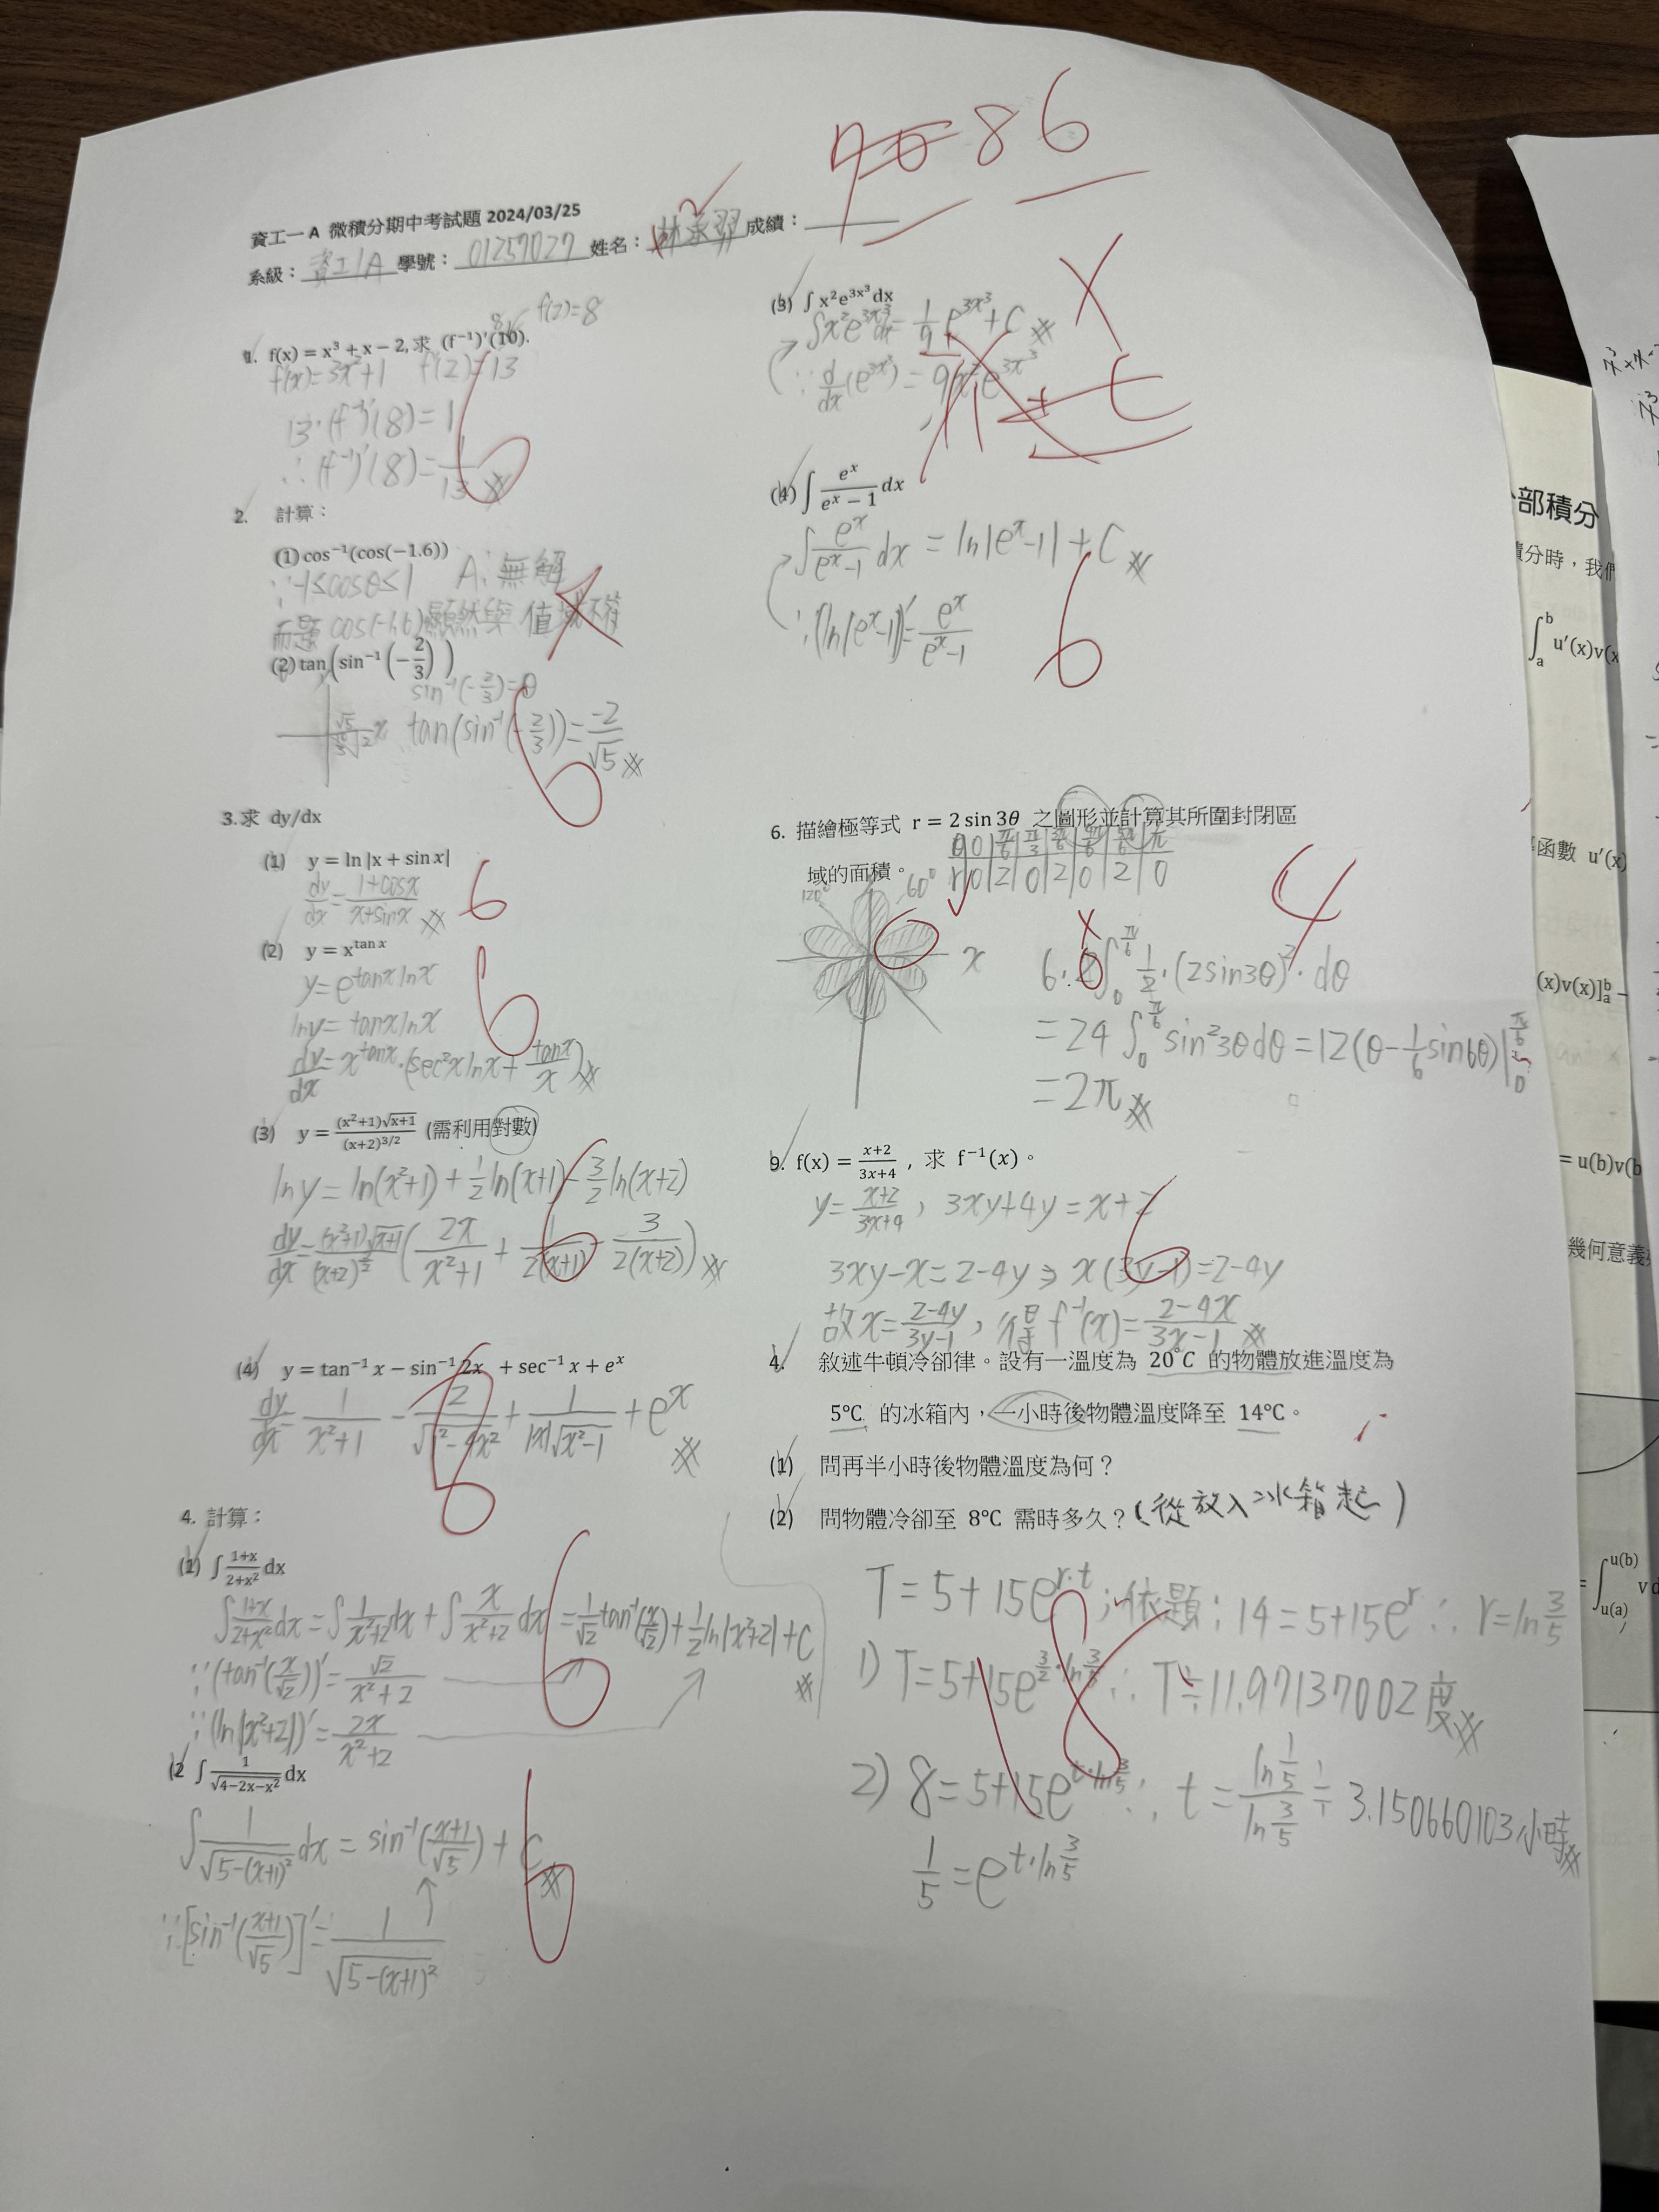 70 86
資工一 A 微積分期中考試題 2024/03/25
系級：資工1A 學號：01257027 姓名：林承羿 成績：
1. f(x) = x³ + x − 2, 求 (f⁻¹)′(10).
8
f(2)=8
f′(x)=3x²+1 f′(2)=13
13·(f⁻¹)′(8)=1
∴(f⁻¹)′(8)=1/13
6
2. 計算：
(1) cos⁻¹(cos(−1.6))
∵-1≤cosθ≤1 A:無解
而題 cos(-1.6)顯然與值域不符
(2) tan(sin⁻¹(−2/3))
sin⁻¹(-2/3)=θ
tan(sin⁻¹(-2/3))=-2/√5
6
3.求 dy/dx
(1) y = ln |x + sin x|
dy/dx=(1+cosx)/(x+sinx)
6
(2) y = x^(tan x)
y=e^(tanxlnx)
lny=tanxlnx
dy/dx=x^(tanx)·(sec²xlnx+tanx/x)
6
(3) y = (x²+1)√(x+1)/(x+2)^(3/2) (需利用對數)
lny=ln(x²+1)+1/2ln(x+1)-3/2ln(x+2)
dy/dx=(x²+1)√(x+1)/(x+2)^(3/2)(2x/(x²+1)+1/(2(x+1))-3/(2(x+2)))
6
(4) y = tan⁻¹ x − sin⁻¹ 2x + sec⁻¹ x + eˣ
dy/dx=1/(x²+1)-2/√(1²-4x²)+1/(|x|√(x²-1))+eˣ
6
4. 計算：
(1) ∫ (1+x)/(2+x²) dx
∫(1+x)/(2+x²)dx=∫1/(x²+2)dx+∫x/(x²+2)dx=1/√2tan⁻¹(x/√2)+1/2ln|x²+2|+C
∵(tan⁻¹(x/√2))′=√2/(x²+2)
∵(ln|x²+2|)′=2x/(x²+2)
6
(2 ∫ 1/√(4−2x−x²) dx
∫1/√(5-(x+1)²)dx=sin⁻¹((x+1)/√5)+C
∵[sin⁻¹((x+1)/√5)]′=1/√(5-(x+1)²)
6
(3) ∫ x²e^(3x³)dx
∫x²e^(3x³)dx=1/9e^(3x³)+C
∵d/dx(e^(3x³))=9x²e^(3x³)
(4) ∫ eˣ/(eˣ − 1) dx
∫eˣ/(eˣ-1)dx=ln|eˣ-1|+C
∵(ln|eˣ-1|)′=eˣ/(eˣ-1)
6
6. 描繪極等式 r = 2 sin 3θ 之圖形並計算其所圍封閉區
域的面積。
r|0|2|0|2|0|2|0
120° 60°
x
4
6·2∫₀^(π/6) 1/2·(2sin3θ)²·dθ
=24∫₀^(π/6) sin²3θdθ=12(θ-1/6sin6θ)|₀^(π/6)
=2π
9. f(x) = (x+2)/(3x+4) , 求 f⁻¹(x)。
y=(x+2)/(3x+4), 3xy+4y=x+2
3xy-x=2-4y⇒x(3y-1)=2-4y
故x=(2-4y)/(3y-1), 得f⁻¹(x)=(2-4x)/(3x-1)
6
4. 敘述牛頓冷卻律。設有一溫度為 20°C 的物體放進溫度為
5°C 的冰箱內，一小時後物體溫度降至 14°C。
(1) 問再半小時後物體溫度為何？
(2) 問物體冷卻至 8°C 需時多久？(從放入冰箱起)
T=5+15e^(r·t);依題:14=5+15e^r∴r=ln3/5
1) T=5+15e^(3/2·ln3/5)∴T≒11.97137002度
2) 8=5+15e^(t·ln3/5)∴t=ln(1/5)/ln(3/5)≒3.150660103小時
1/5=e^(t·ln3/5)
18
部積分
積分時，我們
∫ₐᵇ u′(x)v(x
函數 u′(x)
(x)v(x)]ₐᵇ −
= u(b)v(b
幾何意義
= ∫ᵤ₍ₐ₎^(u(b)) v d